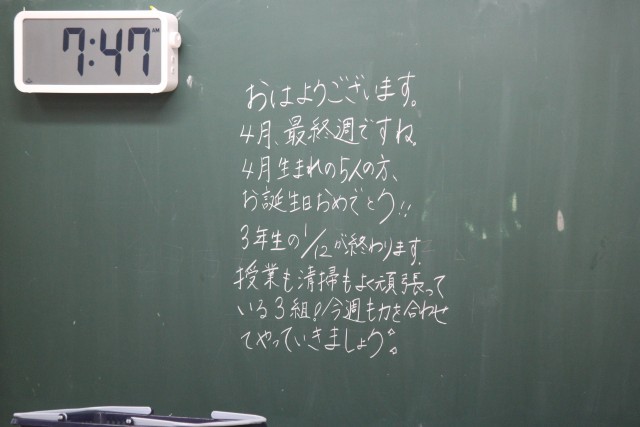 7:47 AM
おはようございます。
4月、最終週ですね。
4月生まれの5人の方、
お誕生日おめでとう!!
3年生の1/12が終わります。
授業も清掃もよく頑張って
いる3組!今週も力を合わせ
てやっていきましょう